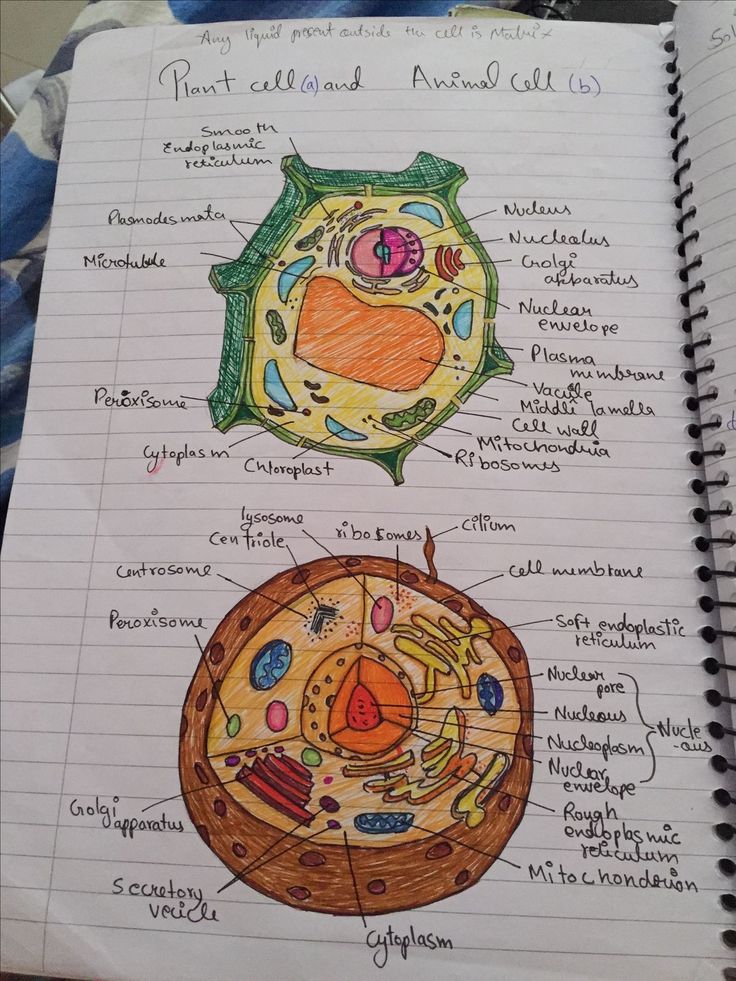 Any liquid present outside the cell is Matrix
Plant cell (a) and Animal Cell (b)
Smooth
Endoplasmic
reticulum
Plasmodesmata
Microtubule
Nucleus
Nucleolus
Golgi
apparatus
Nuclear
envelope
Plasma
membrane
Vacule
Middli lamella
Cell wall
Mitochondria
Ribosomes
Peroxisome
Cytoplasm
Chloroplast
lysosome
Centriole
ribosomes
Cilium
Centrosome
Cell membrane
Peroxisome
Soft endoplastic
reticulum
Nuclear
pore
Nucleous
Nucleoplasm
Nuclear
envelope
Nucle
-ous
Golgi
apparatus
Rough
endoplasmic
reticulum
Mitochondrion
Secretory
vecicle
Cytoplasm
Sol